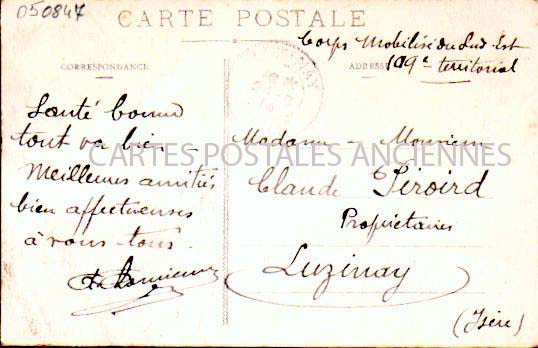 050847
CARTE POSTALE
Corps Mobilisé du Sud-Est
109e territorial
CORRESPONDANCE
ADRESSE
Santé bonne
tout va bien
Meilleures amitiés
bien affectueuses
à vous tous.
Madame - Monsieur
Claude Piroird
Propriétaires
Luzinay
(Isère)
CARTES POSTALES ANCIENNES